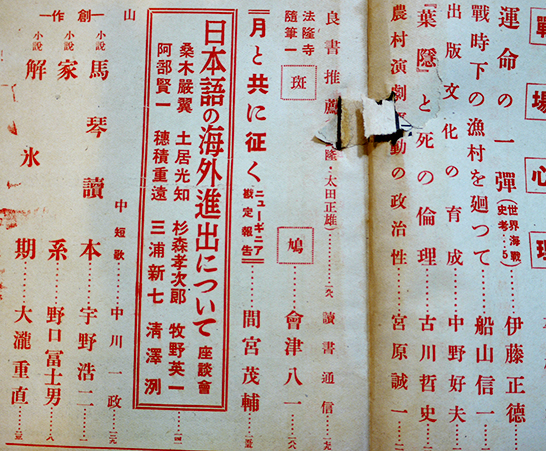 戰場心理
運命の一彈(世界海戰史考…5)……伊藤正德
戰時下の漁村を廻つて……船山信一
出版文化の育成……中野好夫
『葉隱』と死の倫理……古川哲史
農村演劇 動の政治性……宮原誠一
良書推薦 隆・太田正雄)……讀書通信……
法隆寺隨筆一 斑鳩……會津八一……
月と共に征く ニューギニア戡定報告……間宮茂輔……
日本語の海外進出について 座談會
桑木嚴翼 土居光知 杉森孝次郞 牧野英一
阿部賢一 穗積重遠 三浦新七 淸澤洌
山 中短歌……中川一政……
創作
小說 馬琴讀本……宇野浩二……
小說 家系……野口冨士男……
小說 解氷期……大瀧重直……